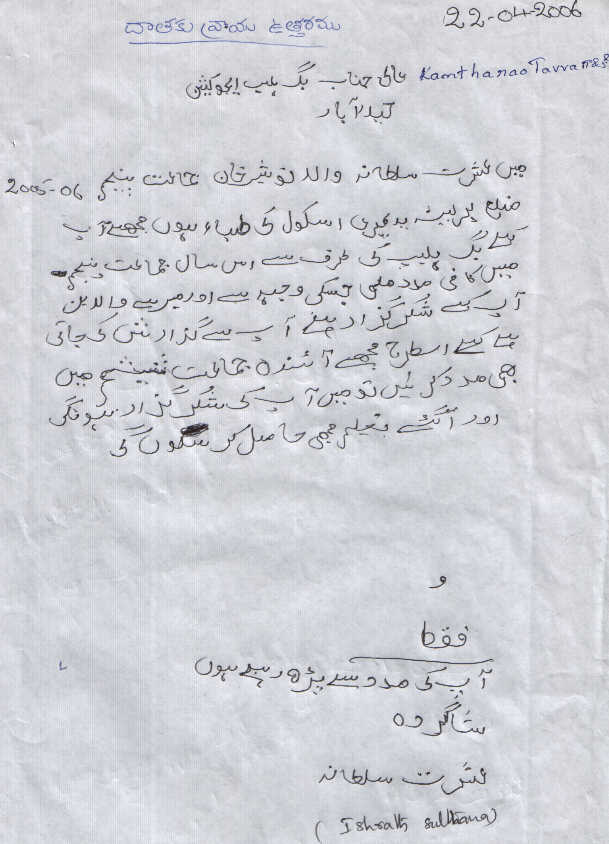 22-04-2006
దాతకు వ్రాయు ఉత్తరము
عالی جناب بگ ہیلپ ایجوکیشن KamthanaoTavva
حیدرآباد
میں عشرت سلطانہ والد نوشیرخان جماعت پنجم 2005-06
ضلع پریشد پرائمری اسکول کی طلباء ہوں مجھے آپ
کے بگ ہیلپ کی طرف سے اس سال جماعت پنجم
میں کافی مدد ملی جسکی وجہ سے اور میرے والدین
آپ کے شکر گزار ہے آپ سے گزارش کی جاتی
ہے کے اسطرح مجھے آئندہ جماعت ششم میں
بھی مدد کریں تو میں آپ کی شکر گزار ہونگی
اور آگے تعلیم بھی حاصل کر سکوں گی
و
فقط
آپ کی مدد سے پڑھ رہے ہوں
شاگردہ
عشرت سلطانہ
(Ishrath sulthana)